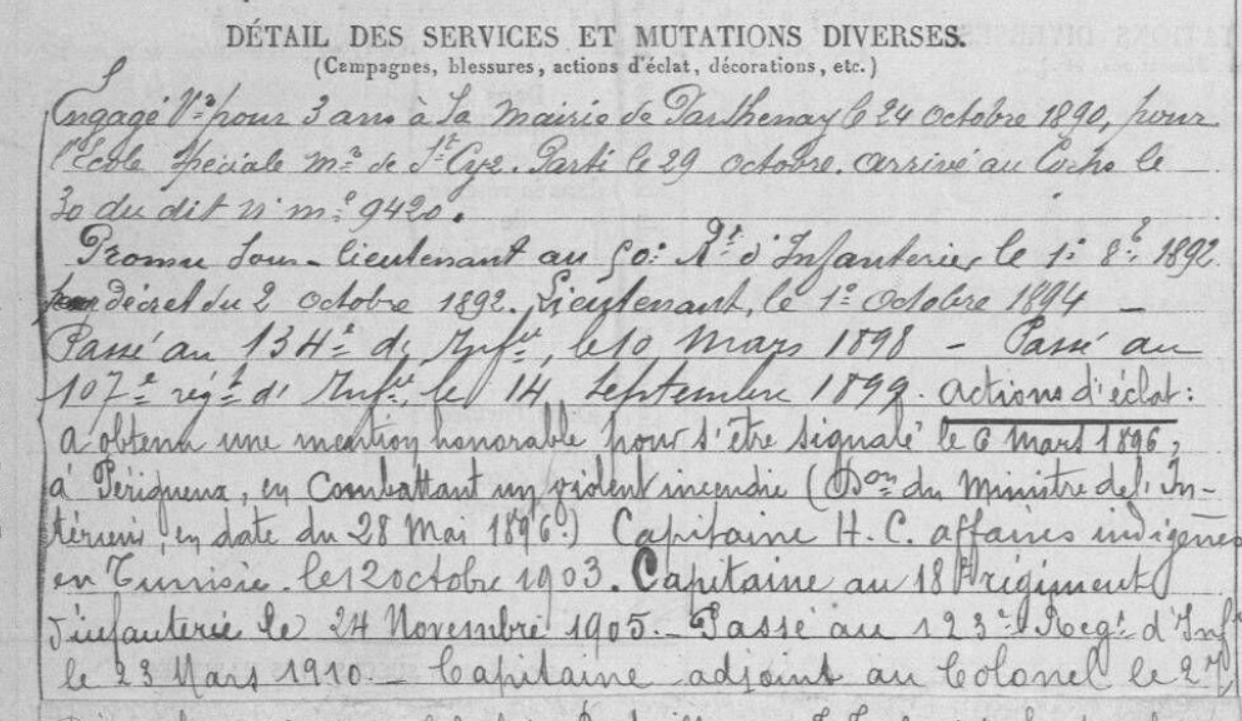 DÉTAIL DES SERVICES ET MUTATIONS DIVERSES.
(Campagnes, blessures, actions d'éclat, décorations, etc.)
Engagé Vre pour 3 ans à la Mairie de Parthenay le 24 octobre 1890, pour
l'École spéciale mre de St Cyr. Parti le 29 octobre. arrivé au Corps le
30 du dit n° mle 9420.
Promu Sous-lieutenant au 50e Rt d'Infanterie, le 1er 8bre 1892
par décret du 2 octobre 1892. Lieutenant, le 1er Octobre 1894 -
Passé au 134e d'Infie, le 10 Mars 1898 - Passé au
107e régt d'Infie, le 14 Septembre 1899. actions d'éclat :
a obtenu une mention honorable pour s'être signalé le 6 Mars 1896,
à Périgueux, en Combattant un violent incendie (Don du Ministre de l'In-
térieur, en date du 28 Mai 1896.) Capitaine H. C. affaires indigènes
en Tunisie. le 12 octobre 1903. Capitaine au 18e régiment
d'infanterie le 24 Novembre 1905. - Passé au 123e Regt d'Infie
le 23 Mars 1910. - Capitaine adjoint au Colonel le 27